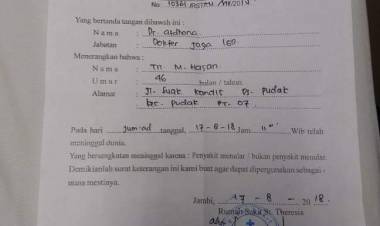 No
Yang bertanda tangan dibawah ini :
N a m a : Dr. ardhana
Jabatan : Dokter jaga IGD
Menerangkan bahwa :
N a m a : Tn. M. Hasan
U m u r : 46 bulan / tahun
Alamat : Jl. Suak Kandis Ds. Pudak
kec. Pudak RT. 07
Pada hari Jum'ad tanggal, 17 - 8 - 18 Jam Wib telah
meninggal dunia.
Yang bersangkutan meninggal karena : Penyakit menular / bukan penyakit menular.
Demikianlah surat keterangan ini kami buat agar dapat dipergunakan sebagai -
mana mestinya.
Jambi, 17 - 8 - 20 18.
Rumah Sakit St. Theresia